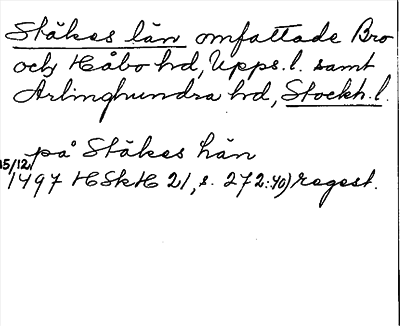 Stäkes län omfattade Bro
och Håbo hd, Upps. l. samt
Ärlinghundra hd, Stockh. l.
på Stäkes hän
15/12
1497 HSkH 21, s. 272:40) regest.